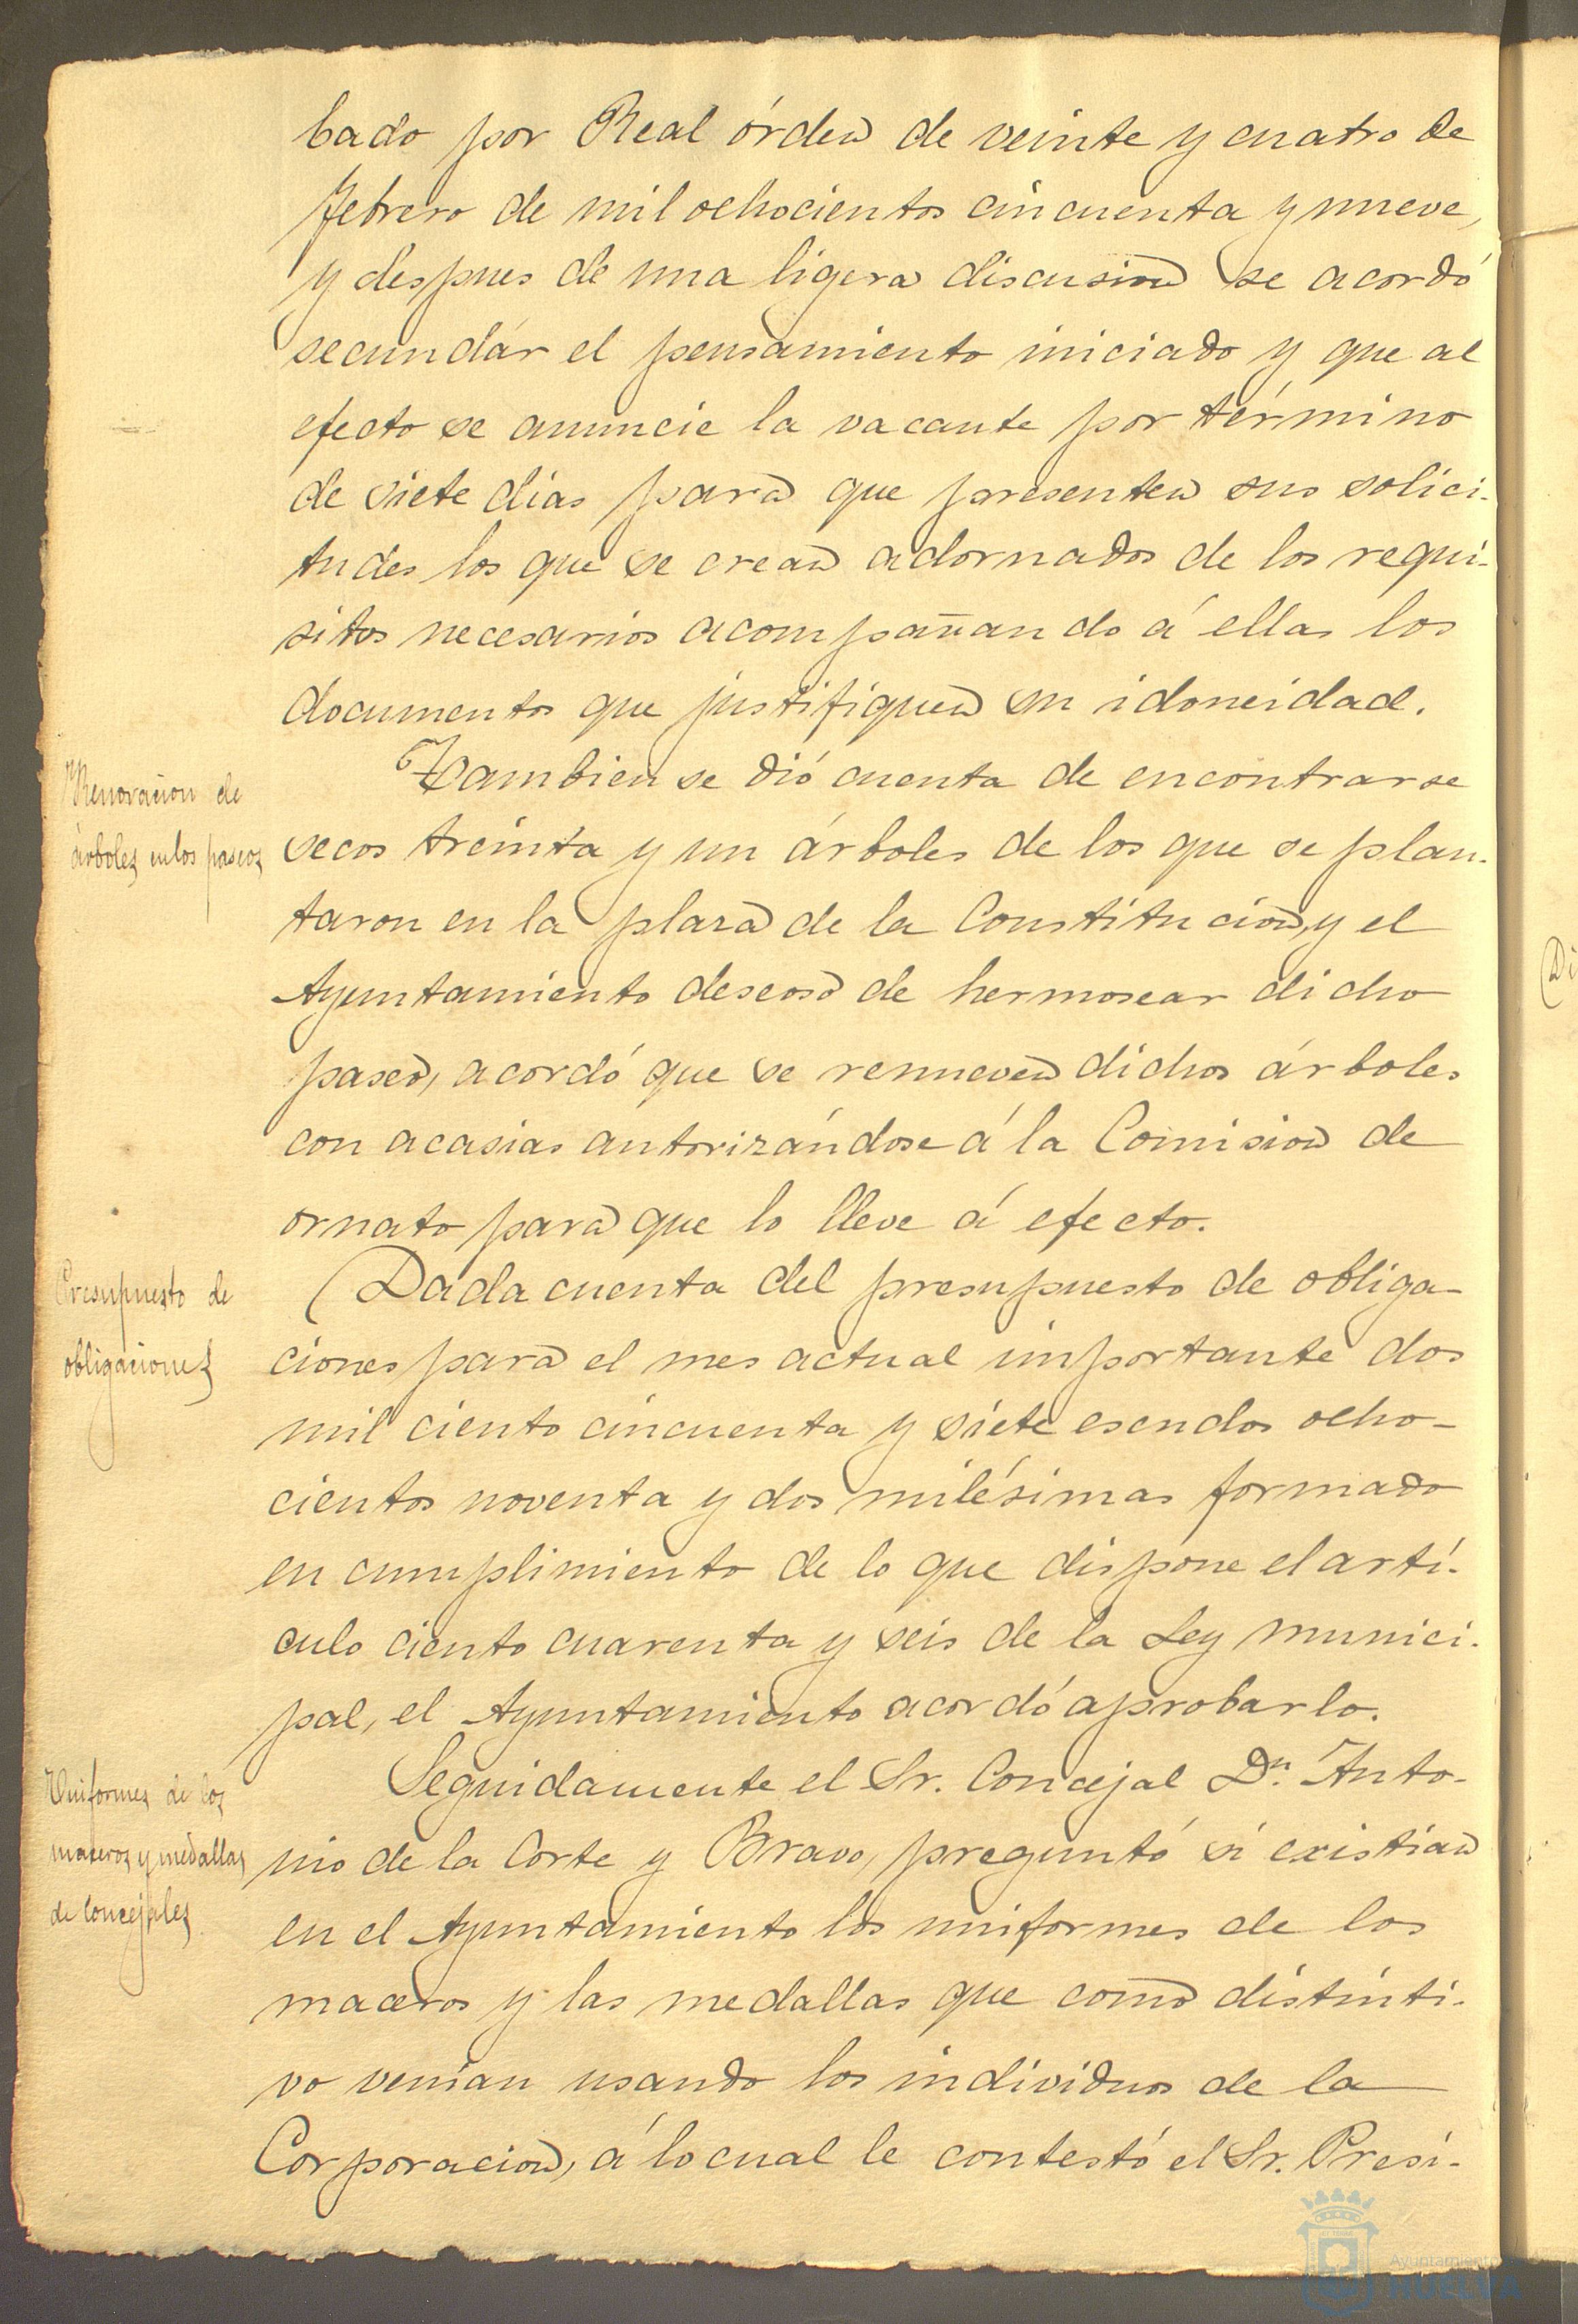 bado por Real órden de veinte y cuatro de
febrero de mil ochocientos cincuenta y nueve,
y despues de una ligera discusion se acordó
secundár el pensamiento iniciado y que al
efecto se anuncie la vacante por término
de siete dias para que presenten sus solici-
tudes los que se crean adornados de los requi-
sitos necesarios acompañando á ellas los
documentos que justifiquen su idoneidad.
Renovacion de
árboles en los paseos
Tambien se dió cuenta de encontrarse
secos treinta y un árboles de los que se plan-
taron en la plaza de la Constitucion, y el
Ayuntamiento deseoso de hermosear dicho
paseo, acordó que se renueven dichos árboles
con acasias autorizándose á la Comision de
ornato para que lo lleve á efecto.
Presupuesto de
obligaciones
Dada cuenta del presupuesto de obliga-
ciones para el mes actual importante dos
mil ciento cincuenta y siete escudos ocho-
cientos noventa y dos milésimas formado
en cumplimiento de lo que dispone el artí-
culo ciento cuarenta y seis de la Ley munici-
pal, el Ayuntamiento acordó aprobarlo.
Uniformes de los
maceros y medallas
de Concejales
Seguidamente el Sr. Concejal Dn. Anto-
nio de la Corte y Bravo, preguntó si existian
en el Ayuntamiento los uniformes de los
maceros y las medallas que como distinti-
vo venian usando los individuos de la
Corporacion, á lo cual le contestó el Sr. Presi-
Di
Ayuntamiento
HUELVA